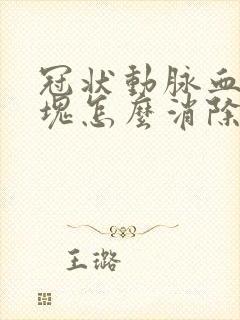 冠狀動脈血
塊怎麼消除
王璐